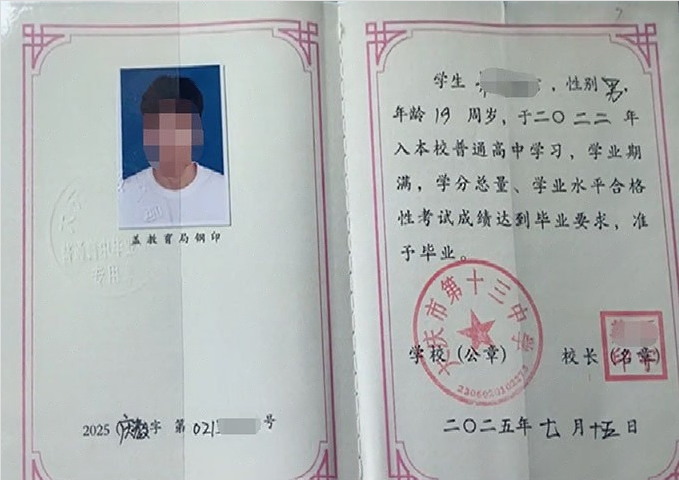 盖教育局钢印
2025 庆教字 第 021 号
学生 ，性别 男，
年龄 19 周岁，于二〇二二 年
入本校普通高中学习，学业期
满，学分总量、学业水平合格
性考试成绩达到毕业要求，准
予毕业。
大庆市第十三中学
学校（公章） 校长（名章）
2306020102273
二〇二五年 七 月十五 日